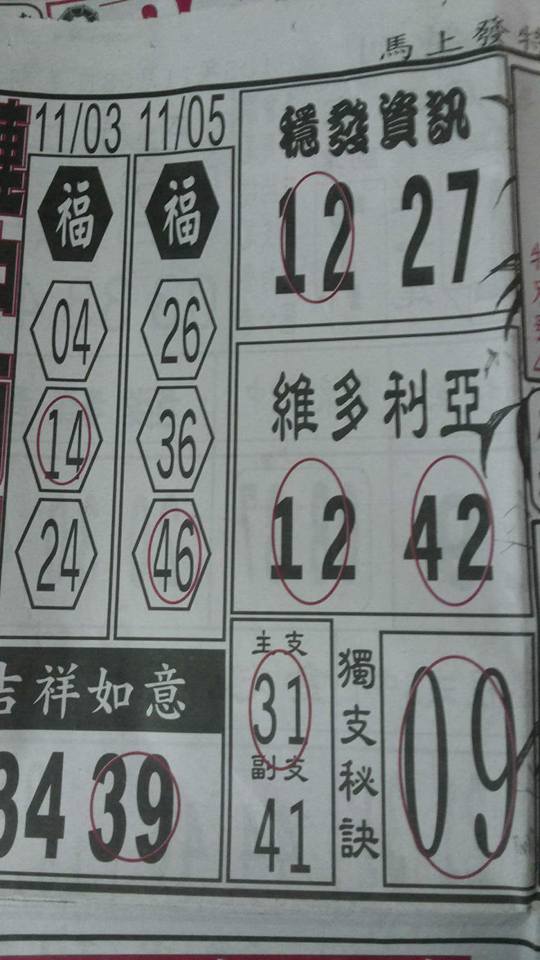 馬上發
11/03 11/05
福 福
04 26
14 36
24 46
穩發資訊
12 27
維多利亞
12 42
吉祥如意
34 39
主支
31
副支
41
獨支秘訣
09